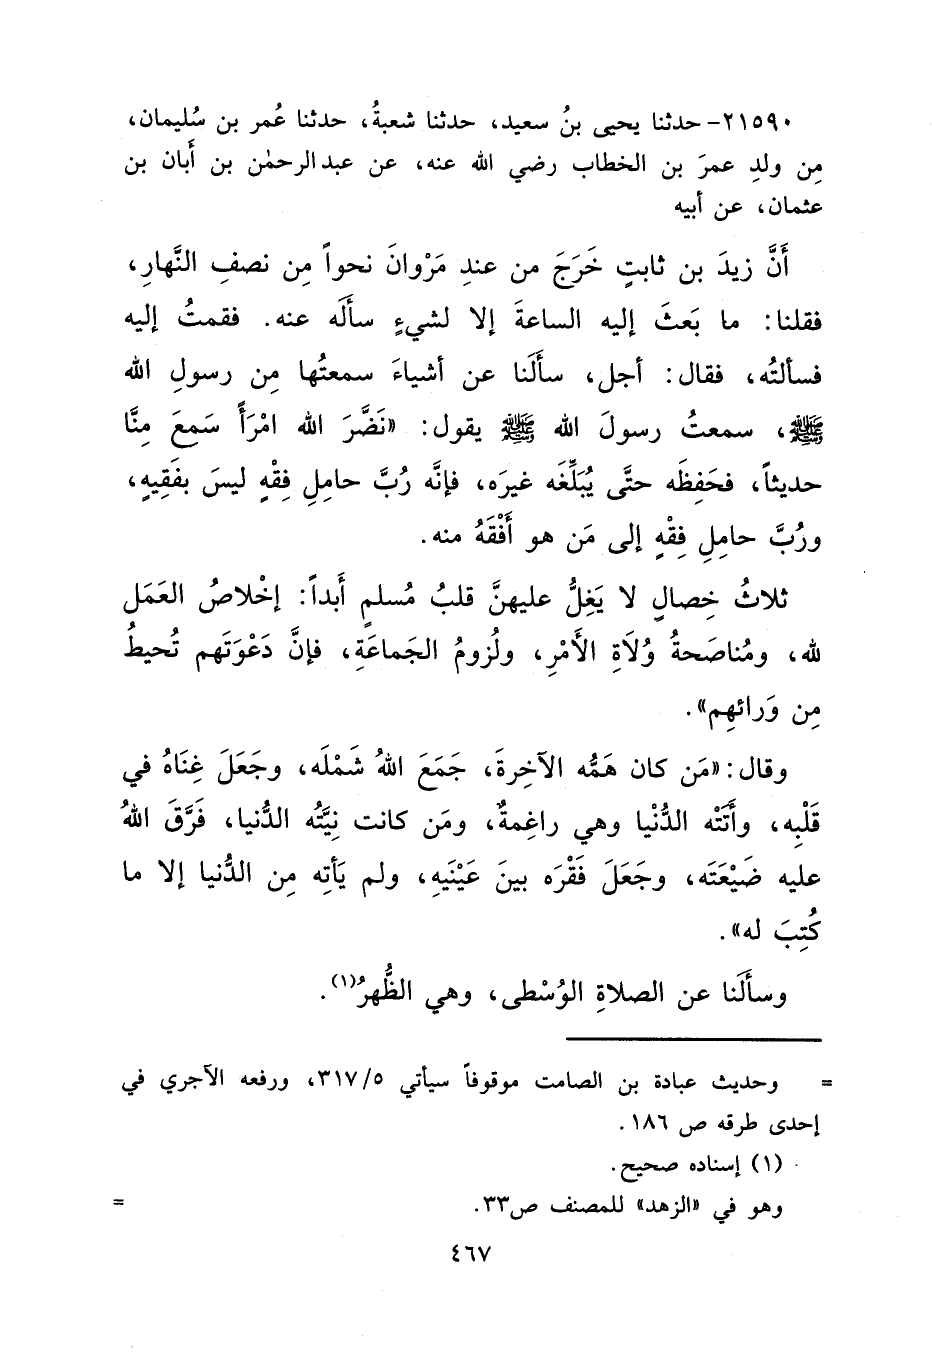 ٢١٥٩٠- حدثنا يحيى بنُ سعيد، حدثنا شعبةُ، حدثنا عُمر بن سُليمان،
مِن ولدِ عمرَ بن الخطاب رضي الله عنه، عن عبد الرحمٰن بن أَبان بن
عثمان، عن أبيه
أَنَّ زيدَ بن ثابتٍ خَرَجَ من عندِ مَرْوانَ نحواً مِن نصفِ النَّهارِ،
فقلنا: ما بَعثَ إليه الساعةَ إلا لشيءٍ سألَه عنه. فقمتُ إليه
فسألتُه، فقال: أجل، سألَنا عن أشياءَ سمعتُها مِن رسولِ الله
ﷺ، سمعتُ رسولَ الله ﷺ يقول: «نَضَّرَ الله امْرَأً سَمِعَ مِنَّا
حديثاً، فحَفِظَه حتَّى يُبَلِّغَه غيرَه، فإنَّه رُبَّ حامِلِ فِقْهٍ ليسَ بفَقِيهٍ،
ورُبَّ حامِلِ فِقْهٍ إلى مَن هو أَفْقَهُ منه.
ثلاثُ خِصالٍ لا يَغِلُّ عليهنَّ قلبُ مُسلمٍ أَبداً: إخْلاصُ العَمَل
لله، ومُناصَحةُ وُلَاةِ الأَمْرِ، ولُزومُ الجَماعَةِ، فإنَّ دَعْوَتَهم تُحيطُ
مِن وَرائهِم».
وقال: «مَن كان هَمُّه الآخِرةَ، جَمَعَ اللهُ شَمْلَه، وجَعَلَ غِنَاهُ في
قَلْبِه، وأَتَتْه الدُّنْيا وهي راغِمةٌ، ومَن كانت نِيَّتُه الدُّنيا، فَرَّقَ اللهُ
عليه ضَيْعَتَه، وجَعَلَ فَقْرَه بينَ عَيْنَيهِ، ولم يَأتِه مِن الدُّنيا إلا ما
كُتِبَ له».
وسألَنا عن الصلاةِ الوُسْطى، وهي الظُّهرُ(١).
= وحديث عبادة بن الصامت موقوفاً سيأتي ٣١٧/٥، ورفعه الآجري في
إحدى طرقه ص ١٨٦.
(١) إسناده صحيح.
وهو في «الزهد» للمصنف ص٣٣. =
٤٦٧